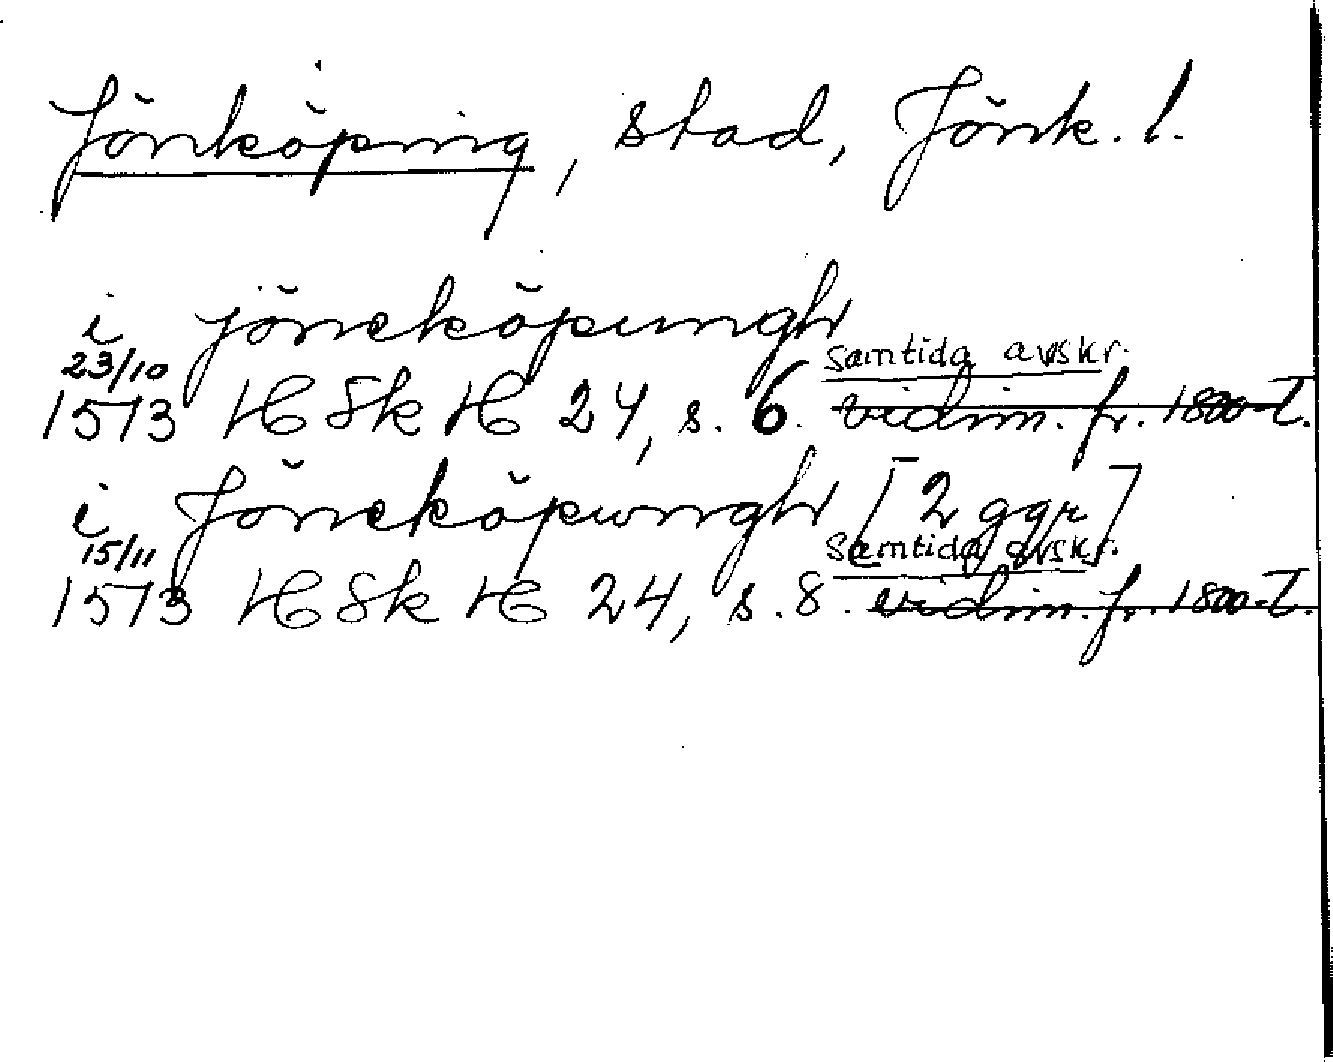 Jönköping, stad, Jönk. l.
i jöneköpungh
23/10
samtida avskr.
1573 H Sk H 24, s. 6. vidim. fr. 1800-t.
i Jöneköpungh [2 ggr]
15/11
Samtida avskr.
1573 H Sk H 24, s. 8. vidim. fr. 1800-t.